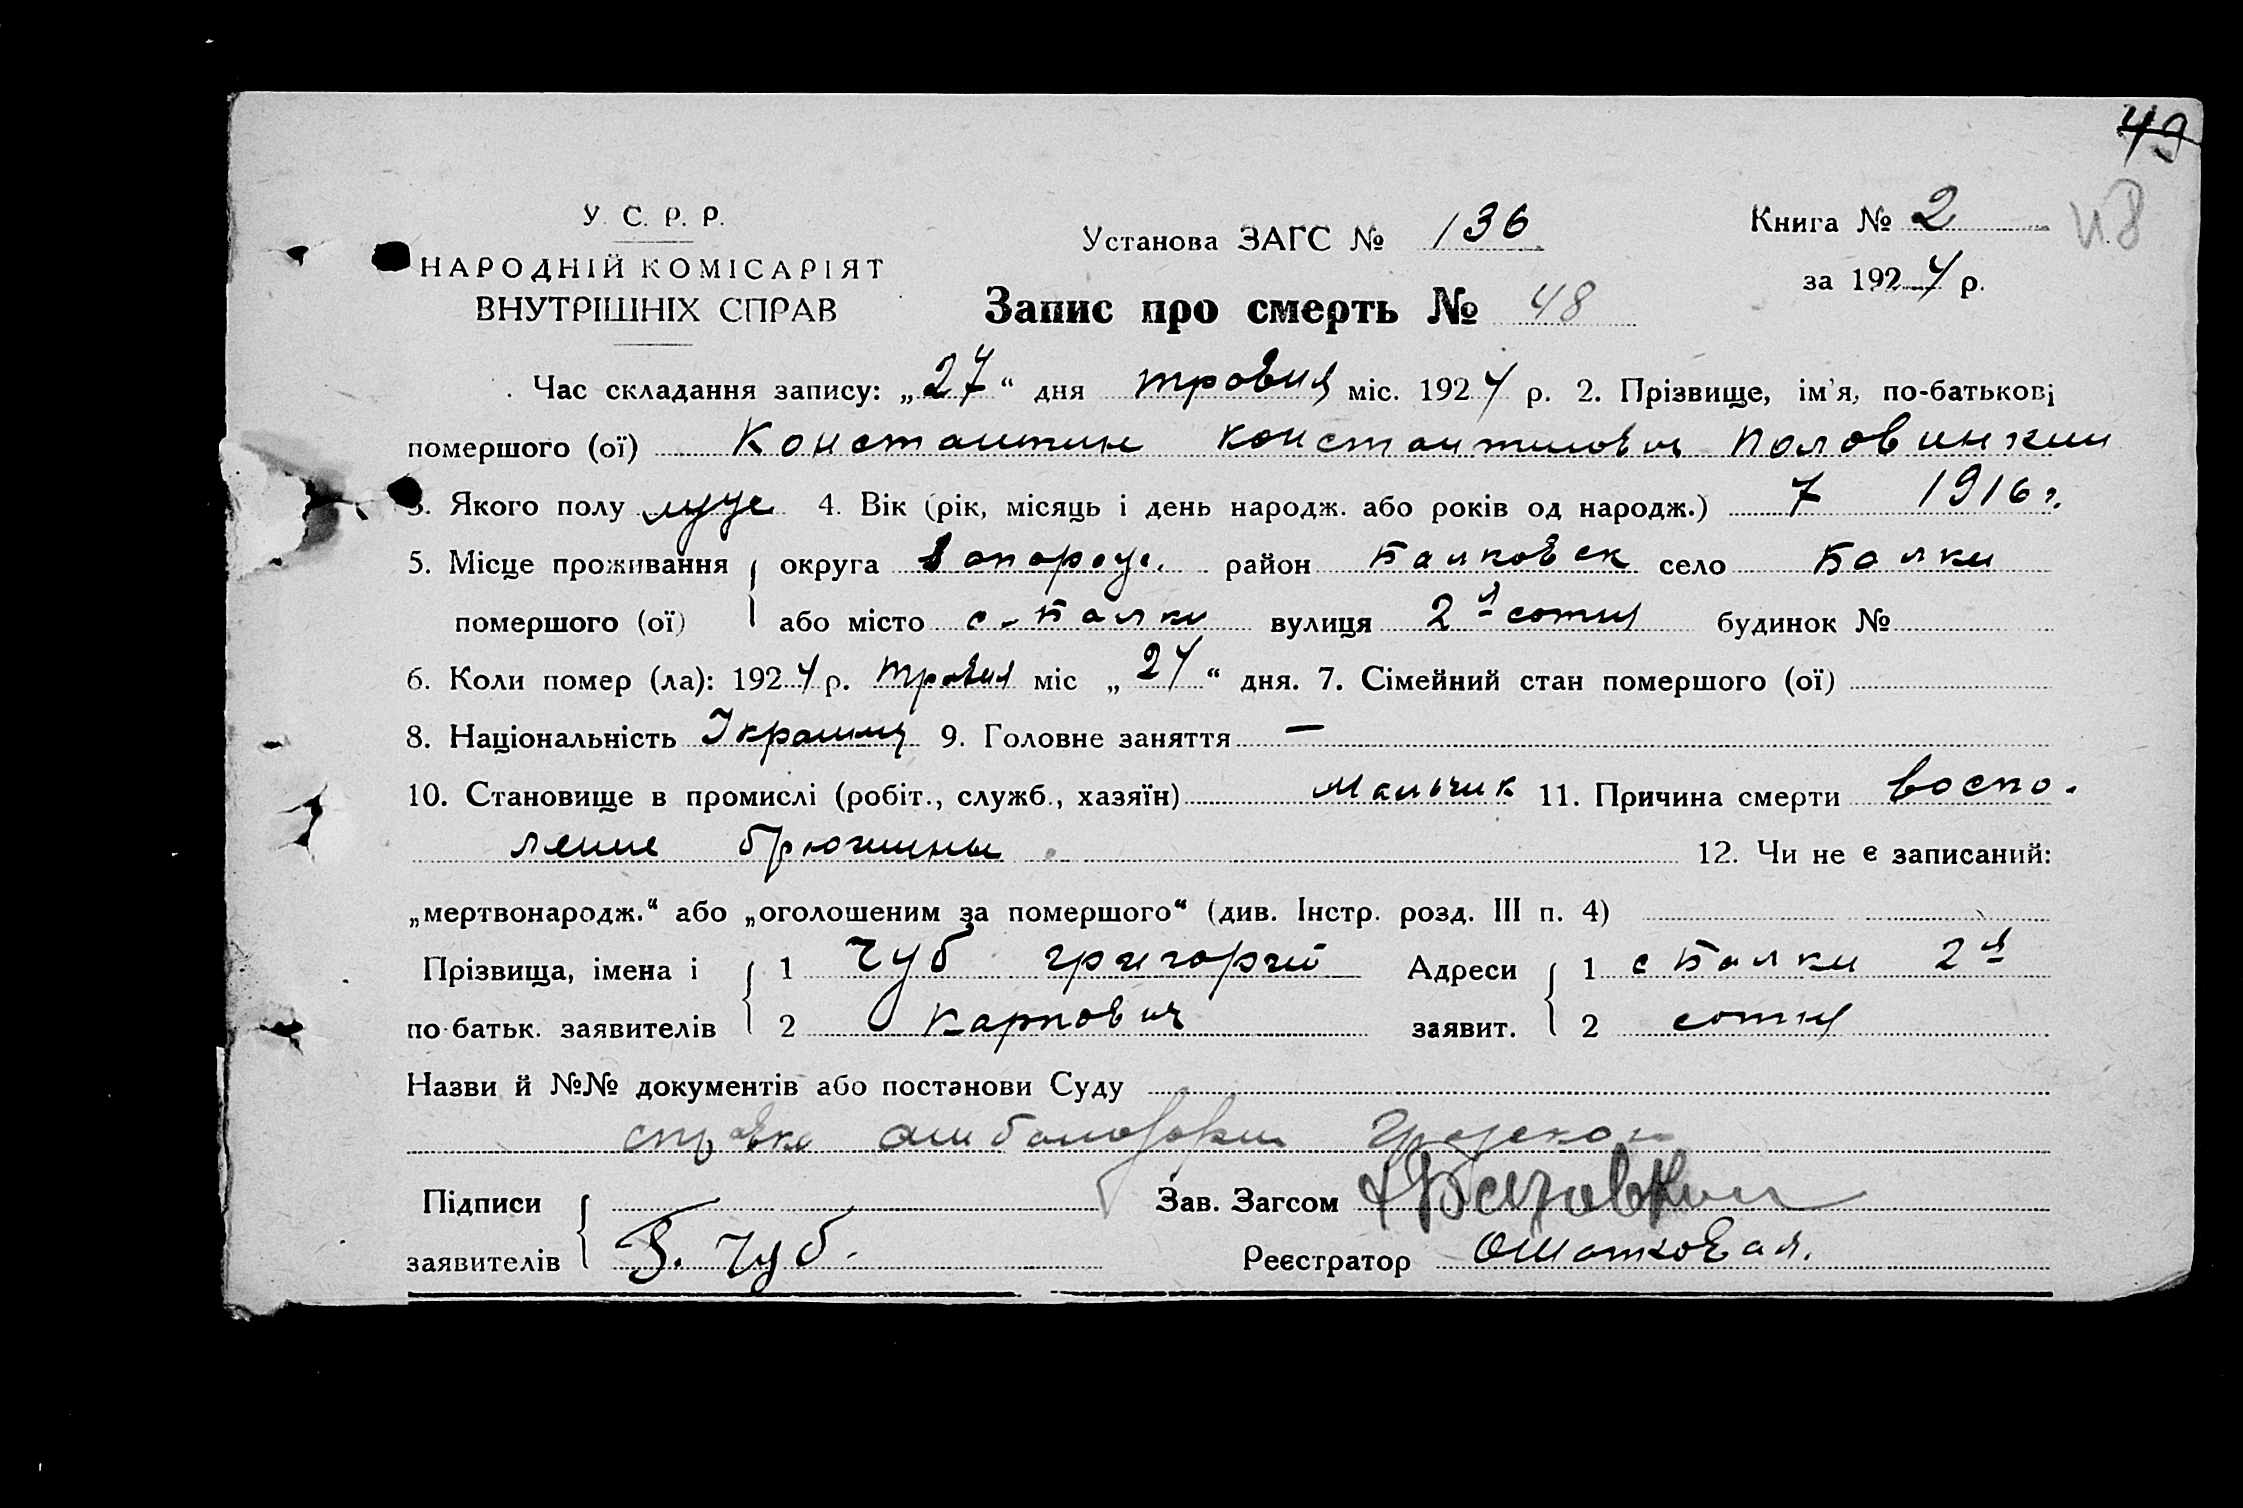 49
У. С. Р. Р.
НАРОДНІЙ КОМІСАРІЯТ
ВНУТРІШНІХ СПРАВ
Установа ЗАГС № 136
Книга № 2
48
за 1924 р.
Запис про смерть № 48
Час складання запису: „27“ дня травня міс. 1924 р. 2. Прізвище, ім'я, по-батькові
помершого (ої) Константин Константинович Половинкин
3. Якого полу муж 4. Вік (рік, місяць і день народж. або років од народж.) 7 1916 г.
5. Місце проживання округа Запорож. район Балковск село Балки
помершого (ої) або місто с-Балки вулиця 2я сотня будинок №
6. Коли помер (ла): 1924 р. травня міс „24“ дня. 7. Сімейний стан помершого (ої)
8. Національність 9. Головне заняття —
10. Становище в промислі (робіт., служб., хазяїн) Мальчик 11. Причина смерти воспо-
ление брюшины
12. Чи не є записаний:
„мертвонародж.“ або „оголошеним за помершого“ (див. Інстр. розд. III п. 4)
Прізвища, імена і 1 Чуб Григорий Адреси 1 с Балки 2я
по-батьк. заявителів 2 Карпович заявит. 2 сотня
Назви й №№ документів або постанови Суду
справка амбулатории
Підписи Зав. Загсом
заявителів Г. Чуб. Реєстратор